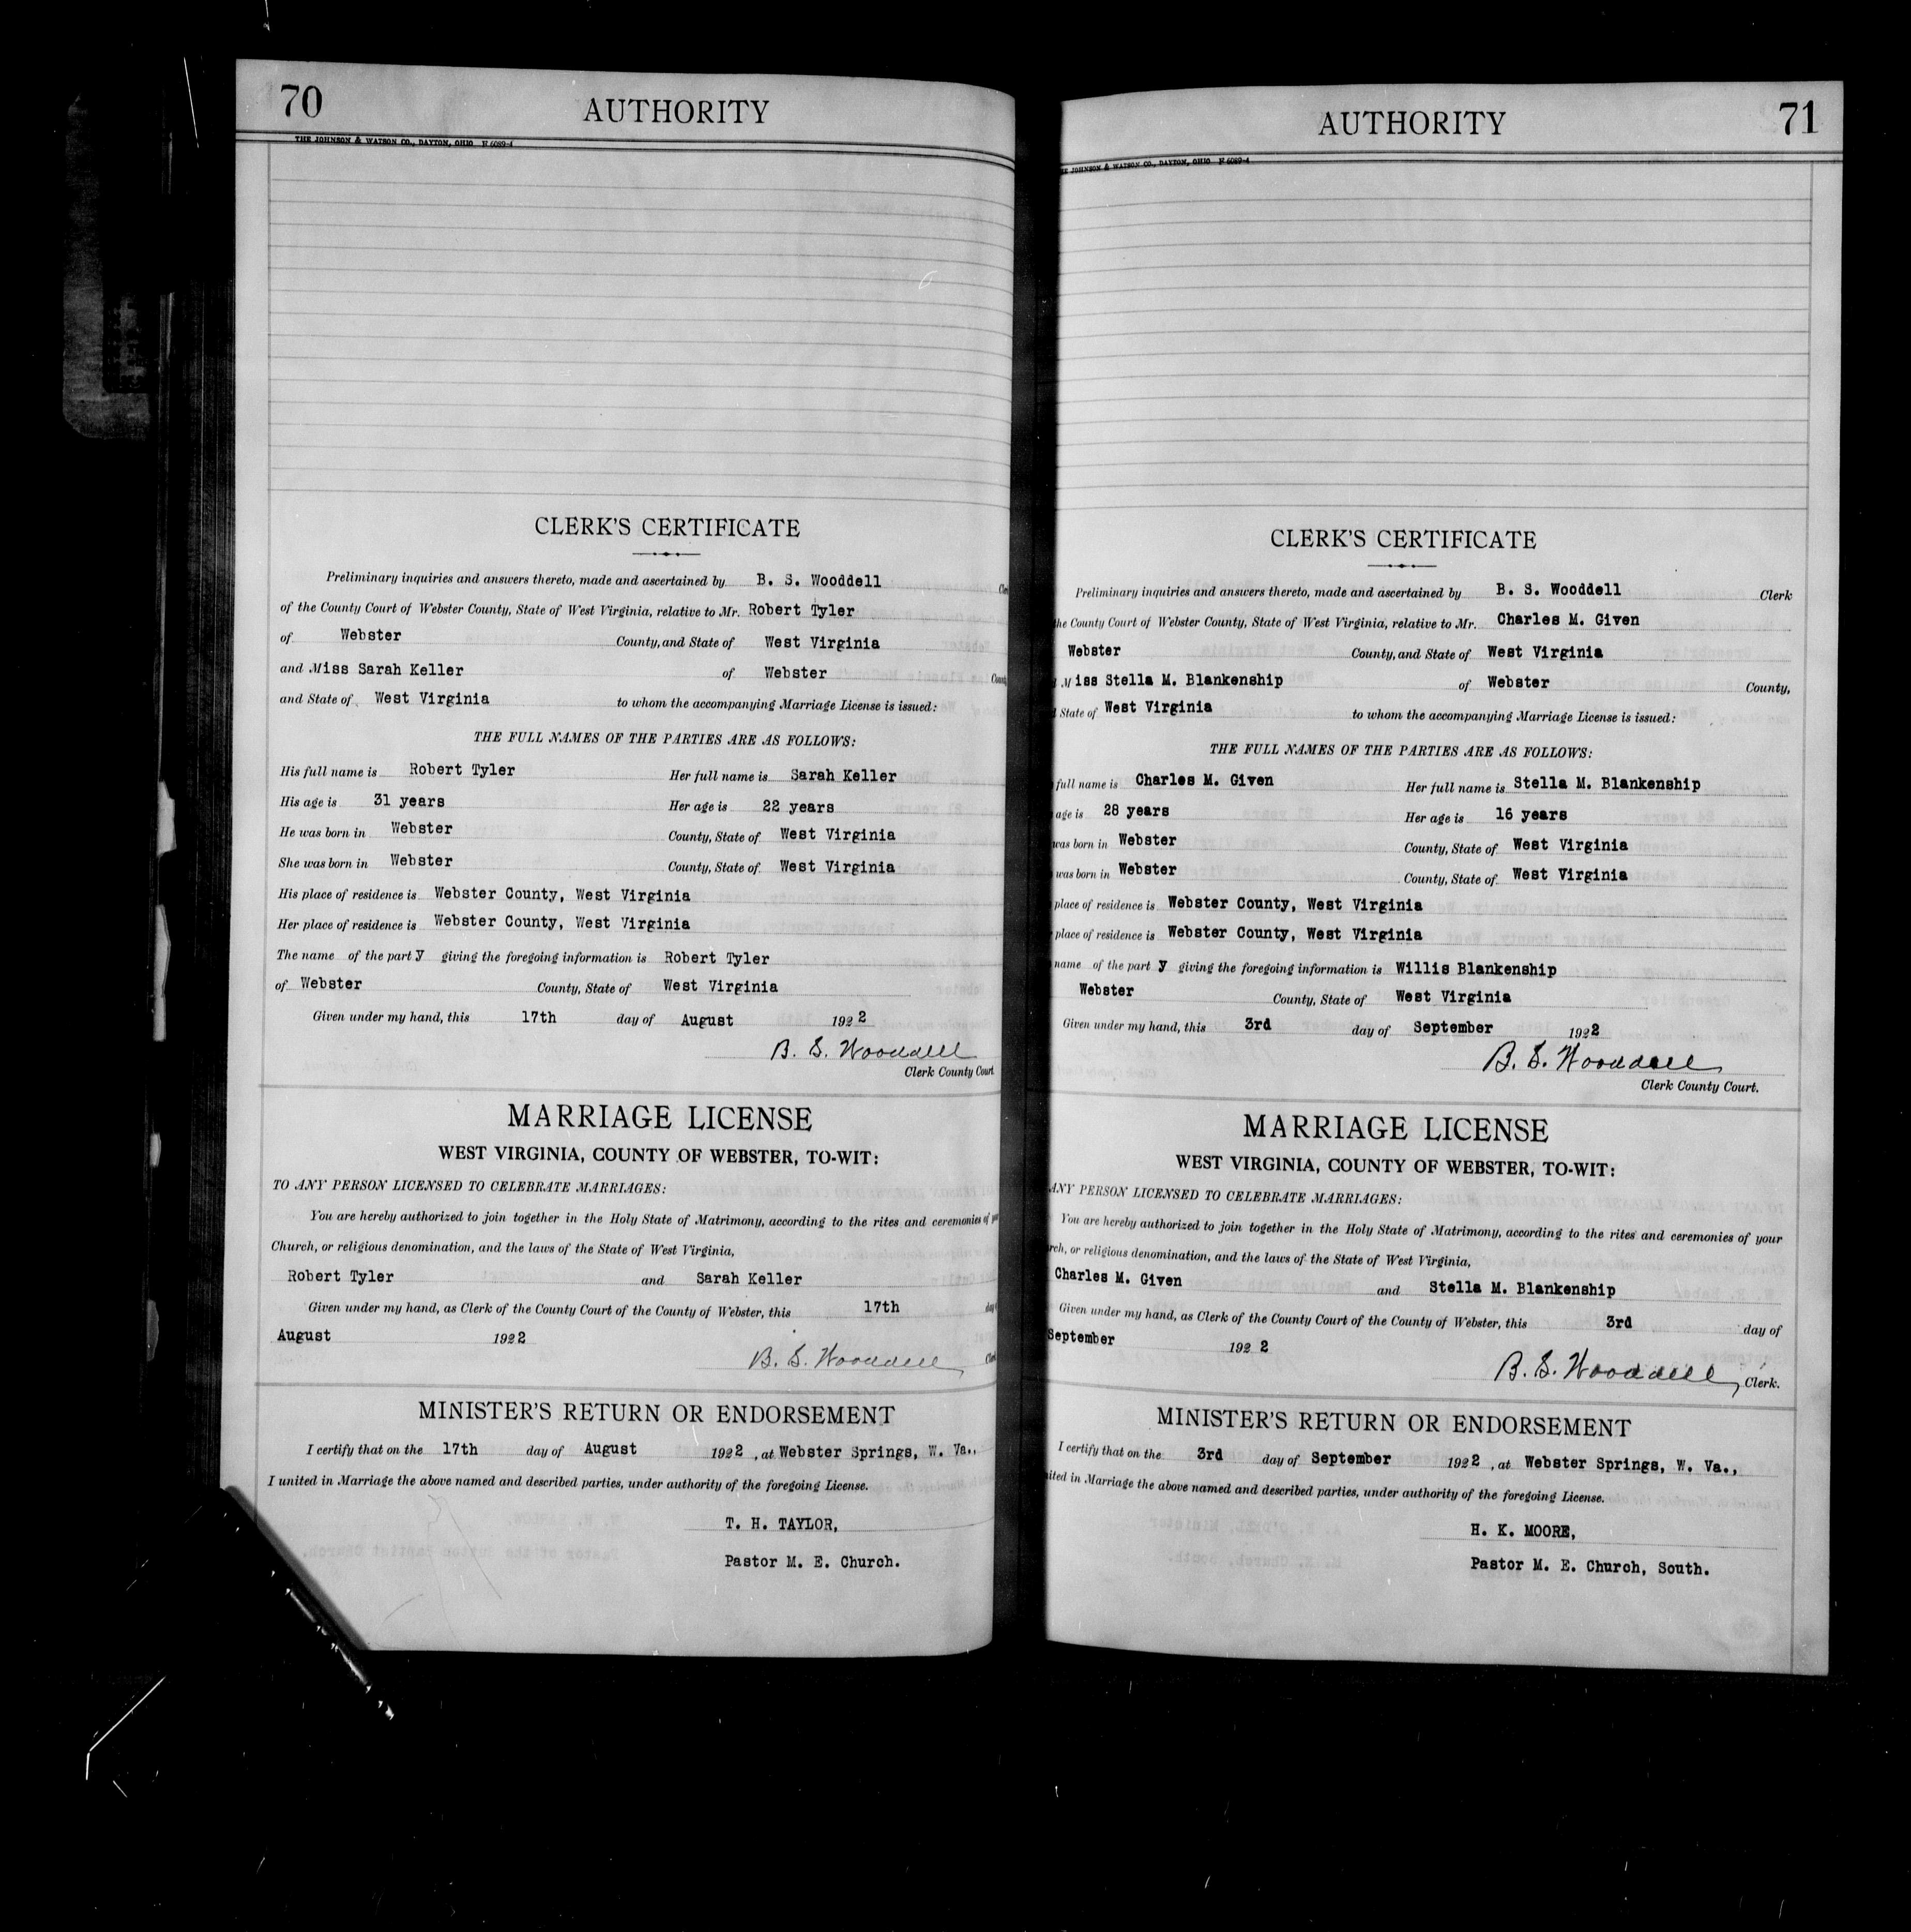 70
AUTHORITY
THE JOHNSON & WATSON CO., DAYTON, OHIO
CLERK'S CERTIFICATE
Preliminary inquiries and answers thereto, made and ascertained by B. S. Wooddell
of the County Court of Webster County, State of West Virginia, relative to Mr. Robert Tyler
of Webster County, and State of West Virginia
and Miss Sarah Keller of Webster
and State of West Virginia to whom the accompanying Marriage License is issued:
THE FULL NAMES OF THE PARTIES ARE AS FOLLOWS:
His full name is Robert Tyler Her full name is Sarah Keller
His age is 31 years Her age is 22 years
He was born in Webster County, State of West Virginia
She was born in Webster County, State of West Virginia
His place of residence is Webster County, West Virginia
Her place of residence is Webster County, West Virginia
The name of the party giving the foregoing information is Robert Tyler
of Webster County, State of West Virginia
Given under my hand, this 17th day of August 1922
B. S. Wooddell
Clerk County Court
MARRIAGE LICENSE
WEST VIRGINIA, COUNTY OF WEBSTER, TO-WIT:
TO ANY PERSON LICENSED TO CELEBRATE MARRIAGES:
You are hereby authorized to join together in the Holy State of Matrimony, according to the rites and ceremonies of
Church, or religious denomination, and the laws of the State of West Virginia,
Robert Tyler and Sarah Keller
Given under my hand, as Clerk of the County Court of the County of Webster, this 17th
August 1922
B. S. Wooddell
MINISTER'S RETURN OR ENDORSEMENT
I certify that on the 17th day of August 1922, at Webster Springs, W. Va.,
I united in Marriage the above named and described parties, under authority of the foregoing License.
T. H. TAYLOR,
Pastor M. E. Church.
71
AUTHORITY
JOHNSON & WATSON CO., DAYTON, OHIO
CLERK'S CERTIFICATE
Preliminary inquiries and answers thereto, made and ascertained by B. S. Wooddell Clerk
the County Court of Webster County, State of West Virginia, relative to Mr. Charles M. Given
Webster County, and State of West Virginia
Miss Stella M. Blankenship of Webster County,
State of West Virginia to whom the accompanying Marriage License is issued:
THE FULL NAMES OF THE PARTIES ARE AS FOLLOWS:
full name is Charles M. Given Her full name is Stella M. Blankenship
age is 28 years Her age is 16 years
was born in Webster County, State of West Virginia
was born in Webster County, State of West Virginia
place of residence is Webster County, West Virginia
place of residence is Webster County, West Virginia
name of the party giving the foregoing information is Willis Blankenship
Webster County, State of West Virginia
Given under my hand, this 3rd day of September 1922
B. S. Wooddell
Clerk County Court.
MARRIAGE LICENSE
WEST VIRGINIA, COUNTY OF WEBSTER, TO-WIT:
ANY PERSON LICENSED TO CELEBRATE MARRIAGES:
You are hereby authorized to join together in the Holy State of Matrimony, according to the rites and ceremonies of your
rch, or religious denomination, and the laws of the State of West Virginia,
Charles M. Given and Stella M. Blankenship
Given under my hand, as Clerk of the County Court of the County of Webster, this 3rd day of
September 1922
B. S. Wooddell, Clerk.
MINISTER'S RETURN OR ENDORSEMENT
I certify that on the 3rd day of September 1922, at Webster Springs, W. Va.,
ited in Marriage the above named and described parties, under authority of the foregoing License.
H. K. MOORE,
Pastor M. E. Church, South.